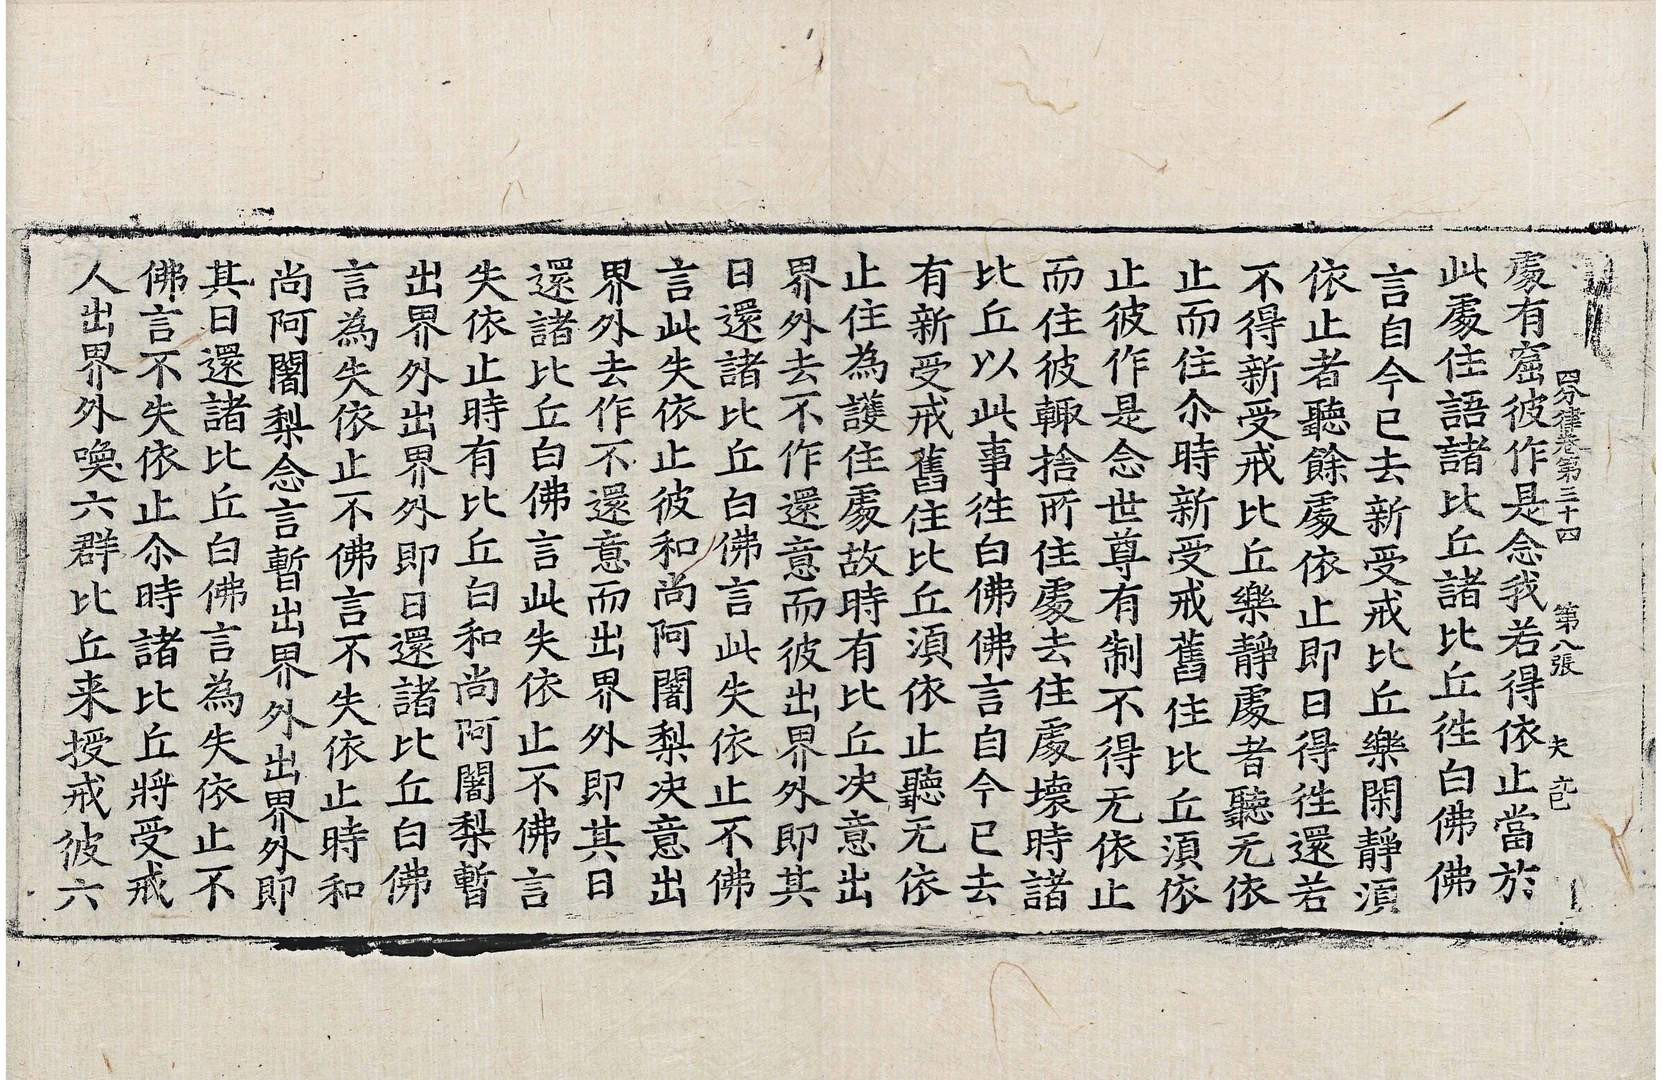 四分律卷第三十四 第八張 夫 
處有窟彼作是念我若得依止當於
此處住語諸比丘諸比丘徃白佛佛
言自今已去新受戒比丘樂閑靜湏
依止者聽餘處依止即日得徃還若
不得新受戒比丘樂靜處者聽无依
止而住尒時新受戒舊住比丘湏依
止彼作是念世尊有制不得无依止
而住彼輙捨所住處去住處壞時諸
比丘以此事徃白佛佛言自今已去
有新受戒舊住比丘湏依止聽无依
止住為護住處故時有比丘决意出
界外去不作還意而彼出界外即其
日還諸比丘白佛言此失依止不佛
言此失依止彼和尚阿闍梨决意出
界外去作不還意而出界外即其日
還諸比丘白佛言此失依止不佛言
失依止時有比丘白和尚阿闍梨暫
出界外出界外即日還諸比丘白佛
言為失依止不佛言不失依止時和
尚阿闍梨念言暫出界外出界外即
其日還諸比丘白佛言為失依止不
佛言不失依止尒時諸比丘將受戒
人出界外喚六群比丘来授戒彼六